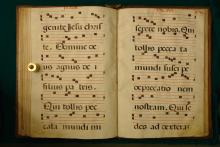 genite Jesu christ
te. Domine de
us agnus de i
filius pa tris.
Qui tollis pec
cata mundi mi
serere nobis. Qui
tollis pecca ta
mundi susci pe
depreca ti o nem
nostram. Qui se
des ad dexteram